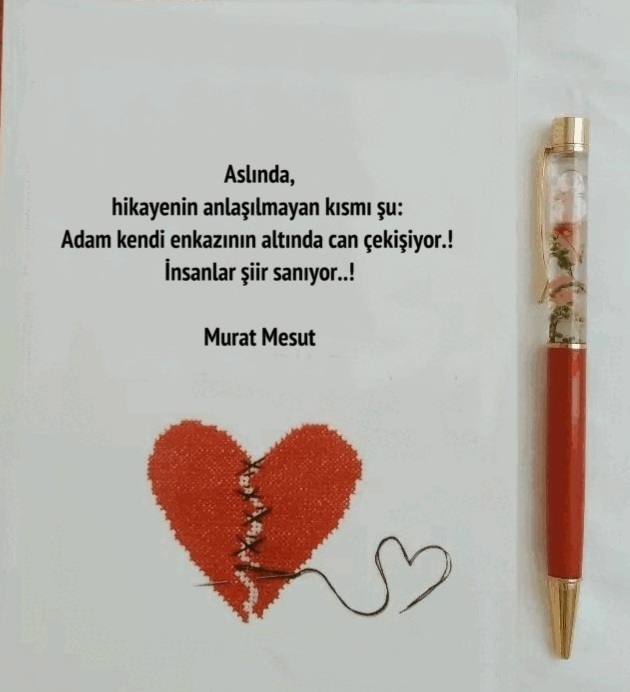 Aslında,
hikayenin anlaşılmayan kısmı şu:
Adam kendi enkazının altında can çekişiyor.!
İnsanlar şiir sanıyor..!
Murat Mesut